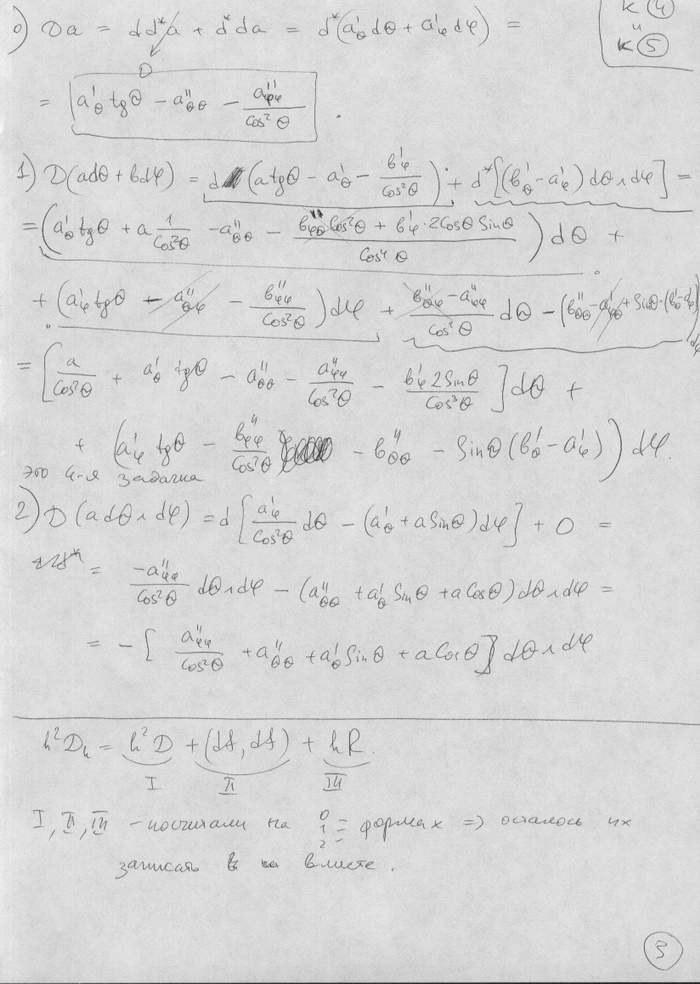 к ④
и
к ⑤
0) Da = dd*a + d*da = d*(a'_θ dθ + a'_φ dφ) =
0
= [a'_θ tgθ − a''_θθ − a''_φφ / cos²θ].
1) D(adθ + bdφ) = d(a tgθ − a'_θ − b'_φ / cos²θ) + d*[(b'_θ − a'_φ) dθ∧dφ] =
= (a'_θ tgθ + a 1/cos²θ − a''_θθ − (b''_φθ cos²θ + b'_φ · 2cosθ sinθ) / cos⁴θ) dθ +
+ (a'_φ tgθ − a''_θφ − b''_φφ / cos²θ) dφ + (b''_θφ − a''_φφ) / cos²θ dθ − (b''_θθ − a''_φθ + sinθ · (b'_θ − a'_φ)) dφ
= [a / cos²θ + a'_θ tgθ − a''_θθ − a''_φφ / cos²θ − b'_φ 2sinθ / cos³θ] dθ +
+ (a'_φ tgθ − b''_φφ / cos²θ − b''_θθ − sinθ (b'_θ − a'_φ)) dφ.
это 4-я задачка
2) D(a dθ∧dφ) = d[a'_φ / cos²θ dθ − (a'_θ + a sinθ) dφ] + 0 =
= −a''_φφ / cos²θ dθ∧dφ − (a''_θθ + a'_θ sinθ + a cosθ) dθ∧dφ =
= −[a''_φφ / cos²θ + a''_θθ + a'_θ sinθ + a cosθ] dθ∧dφ
h²D_h = h²D + (df, df) + hR.
I II III
I, II, III – посчитали на 0 1 2 = формах => осталось их
записать вместе.
③